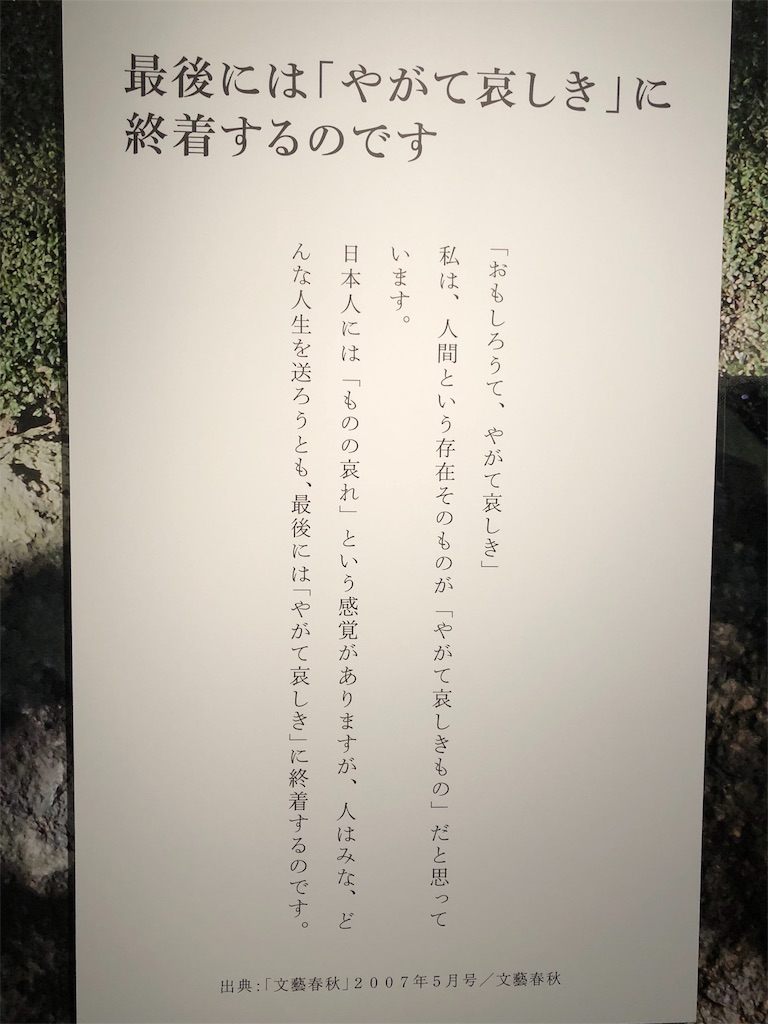 最後には「やがて哀しき」に
終着するのです
「おもしろうて、やがて哀しき」
私は、人間という存在そのものが「やがて哀しきもの」だと思って
います。
日本人には「ものの哀れ」という感覚がありますが、人はみな、ど
んな人生を送ろうとも、最後には「やがて哀しき」に終着するのです。
出典:「文藝春秋」2007年5月号／文藝春秋